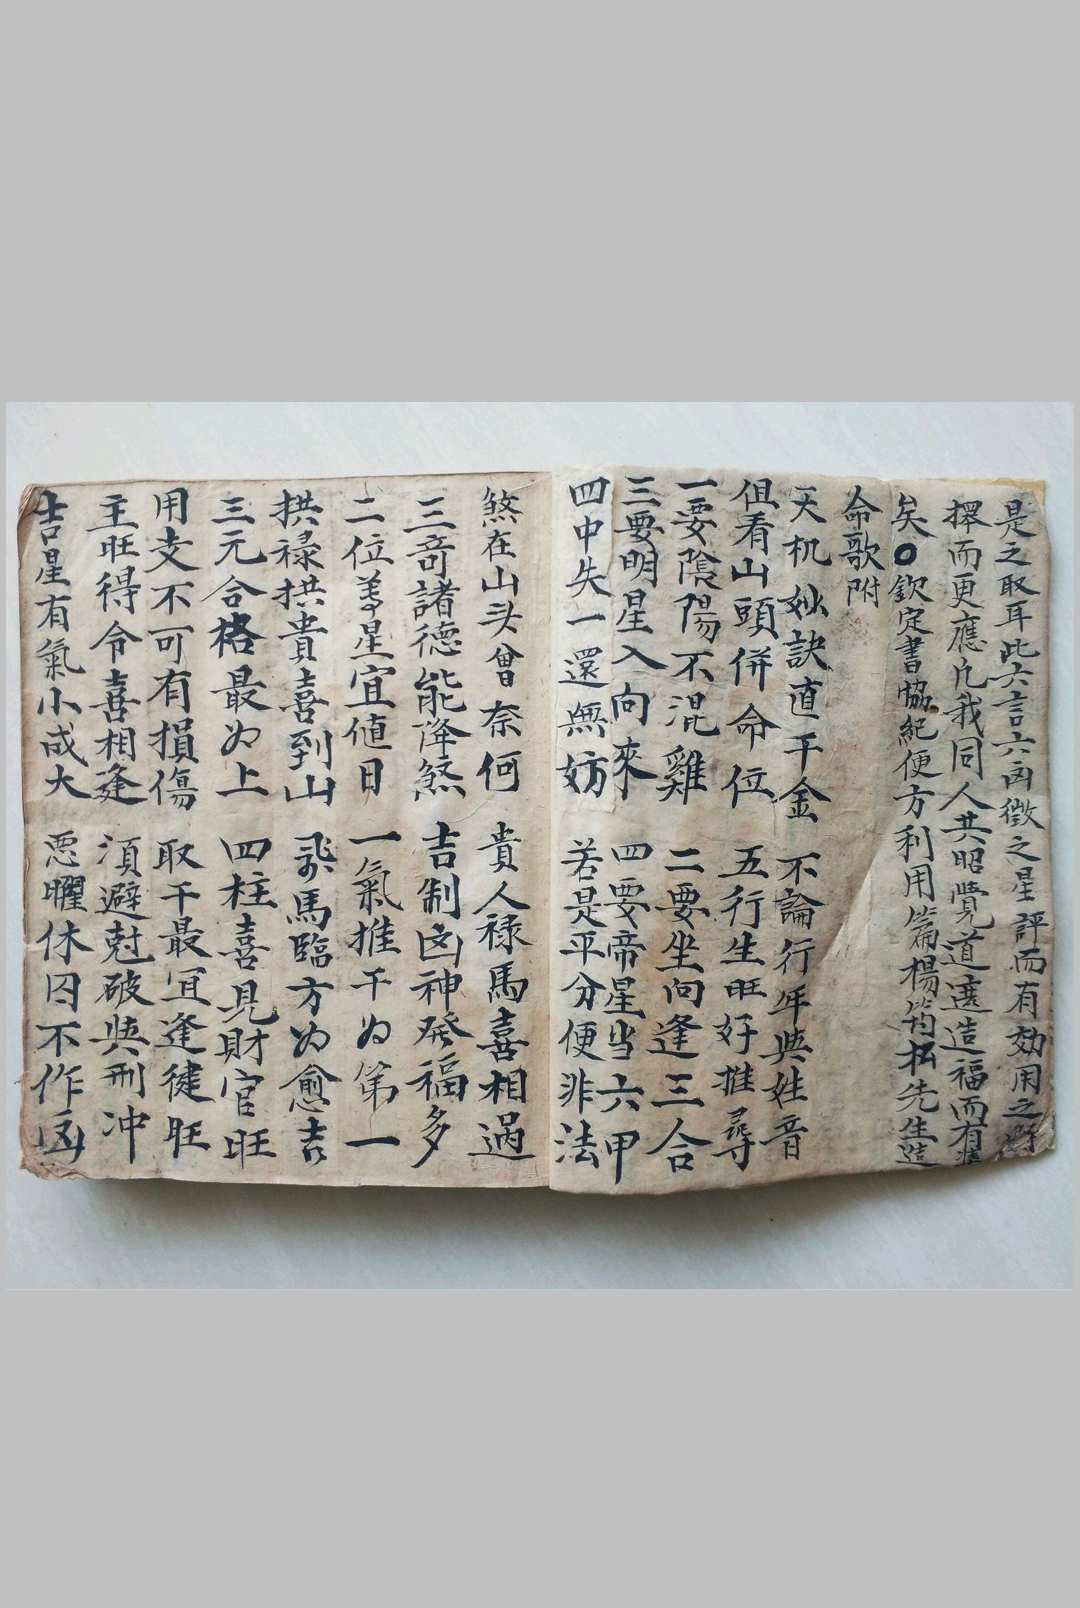 是之取耳此六言六凶徵之星評而有効用之
擇而更應凢我同人共昭覺道選造福而有准
矣○欽定書協紀便方利用篇楊筠松先生造
命歌附
天机妙訣直千金　不論行年與姓音
但看山頭併命位　五行生旺好推尋
一要陰陽不混雞　二要坐向逢三合
三要明星入向來　四要帝星当六甲
四中失一還無妨　若是平分便非法
煞在山头曾奈何　貴人禄馬喜相過
三竒諸德能降煞　吉制凶神發福多
二位善星宜値日　一氣推干為第一
拱禄拱貴喜到山　飛馬臨方為愈吉
三元合格最為上　四柱喜見財官旺
用支不可有損傷　取干最宜逢健旺
主旺得令喜相逢　湏避尅破與刑冲
吉星有氣小成大　悪曜休囚不作凶